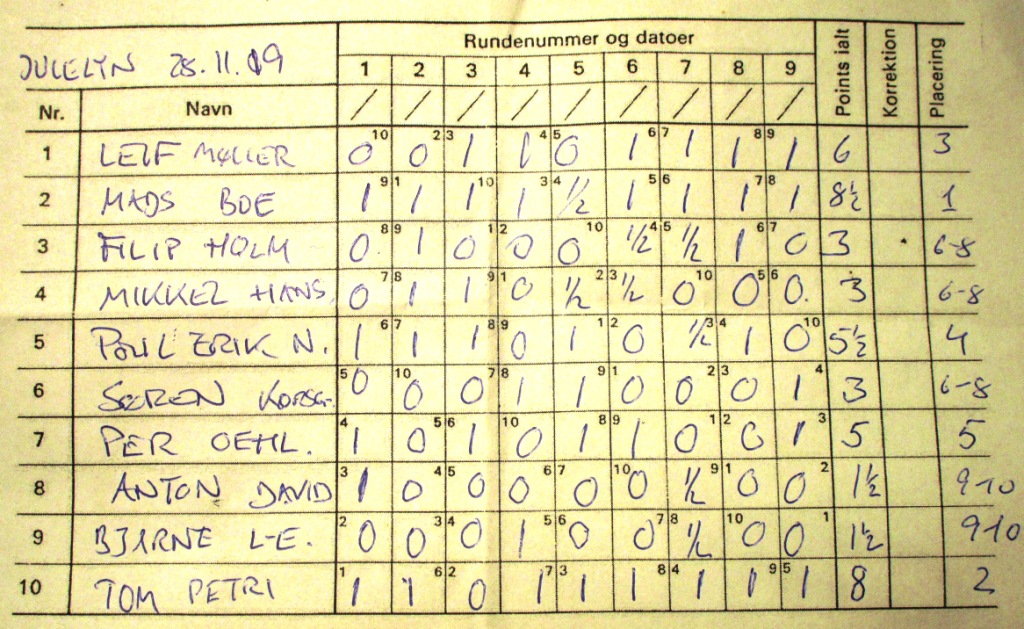 Rundenummer og datoer
JULELYN 28.11.09 1 2 3 4 5 6 7 8 9 Points ialt Korrektion Placering
Nr. Navn / / / / / / / / /
1 LEIF MØLLER 0 10 0 2 3 1 1 4 5 0 1 6 7 1 1 8 9 1 6 3
2 MADS BOE 1 9 1 1 1 10 1 3 4 ½ 1 5 6 1 1 7 8 1 8½ 1
3 FILIP HOLM 0 8 9 1 0 1 2 0 0 10 ½ 4 5 ½ 1 6 7 0 3 6-8
4 MIKKEL HANS. 0 7 8 1 1 9 1 0 ½ 2 3 ½ 0 10 0 5 6 0 3 6-8
5 POUL ERIK N. 1 6 7 1 1 8 9 0 1 1 2 0 ½ 3 4 1 0 10 5½ 4
6 SØREN KORSG. 5 0 10 0 0 7 8 1 1 9 1 0 0 2 3 0 1 4 3 6-8
7 PER OEHL. 4 1 0 5 6 1 10 0 1 8 9 1 0 1 2 0 1 3 5 5
8 ANTON DAVID 3 1 0 4 5 0 0 6 7 0 10 0 ½ 9 1 0 0 2 1½ 9-10
9 BJARNE L-E. 2 0 0 3 4 0 1 5 6 0 0 7 8 ½ 10 0 0 1 1½ 9-10
10 TOM PETRI 1 1 1 6 2 0 1 7 3 1 1 8 4 1 1 9 5 1 8 2